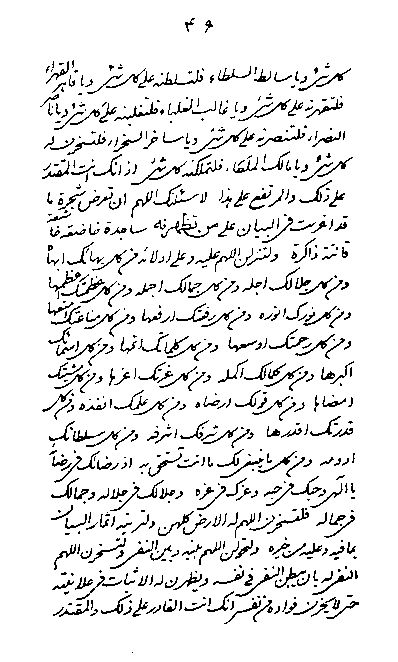 ٤٩
كل شئ و يا سالط السلطاء فلتسلطنه على كل شئ و يا قاهر القهراء
فلتقهرنه على كل شئ و يا غالب الغلباء فلتغلبنه على كل شئ و يا ناصر
النصراء فلتنصرنه على كل شئ و يا ساخر السخراء فلتسخرن له
كل شئ و يا مالك الملكاء فلتملكنه كل شئ اذ انك انت المقتدر
على ذلك والمرتفع على هذا لاسئلنك اللهم ان تعرض شجرة ما
قد اغرست فى البيان على من تظهرنه ساجدة خاضعة خاشعة
قانتة ذاكرة ولتنزلن اللهم عليه وعلى ادلائه من كل بهائك ابهاه
ومن كل جلالك اجله ومن كل جمالك اجمله ومن كل عظمتك اعظمها
ومن كل نورك انوره ومن كل رفعتك ارفعها ومن كل مناعتك امنعها
ومن كل رحمتك اوسعها ومن كل كلماتك اتمها ومن كل اسمائك
اكبرها ومن كل كمالك اكمله ومن كل عزتك اعزها ومن كل مشيتك
امضاها ومن كل قولك ارضاه ومن كل علمك انفذه ومن كل
قدرتك اقدرها ومن كل شرفك اشرفه ومن كل سلطانك
ادومه ومن كل ما ينبغى لك ما انت تستحق به اذ رضائك فى رضاه
يا الهى وحبك فى حبه وعزك فى عزه وجلالك فى جلاله وجمالك
فى جماله فلتسخرن اللهم له الارض كلهن ولتربينه اثمار البيان
بما فيه وعليه من خيره ولتحولن اللهم بينه وبين النفى ولتسخرن اللهم
النفى له بان يبطن النفى فى نفسه ويظهرن له الاثبات فى علانيته
حتى لا يحزن فؤاده من نفس انك انت القادر على ذلك والمقتدر